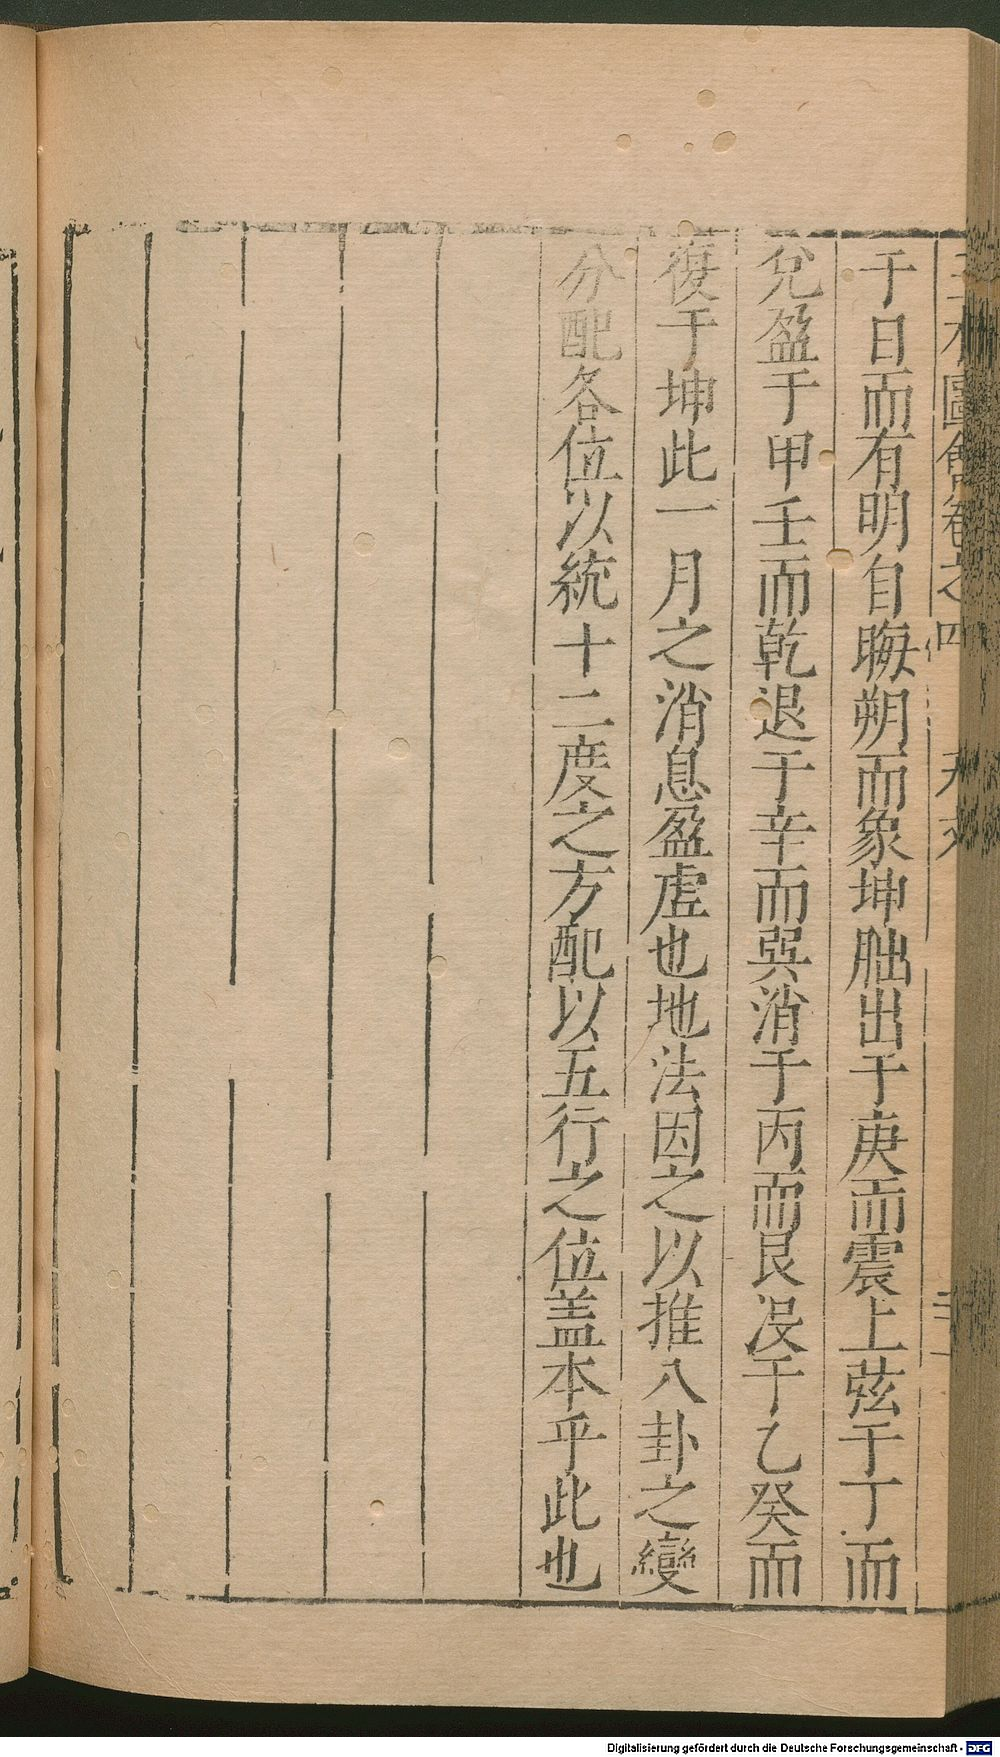 于日而有明自晦朔而象坤朏出于庚而震上弦于丁而
兊盈于甲壬而乾退于辛而巽消于丙而艮没于乙癸而
復于坤此一月之消息盈虛也地法因之以推八卦之變
分配各位以統十二度之方配以五行之位盖本乎此也
圖會卷之四 天文
Digitalisierung gefördert durch die Deutsche Forschungsgemeinschaft - DFG